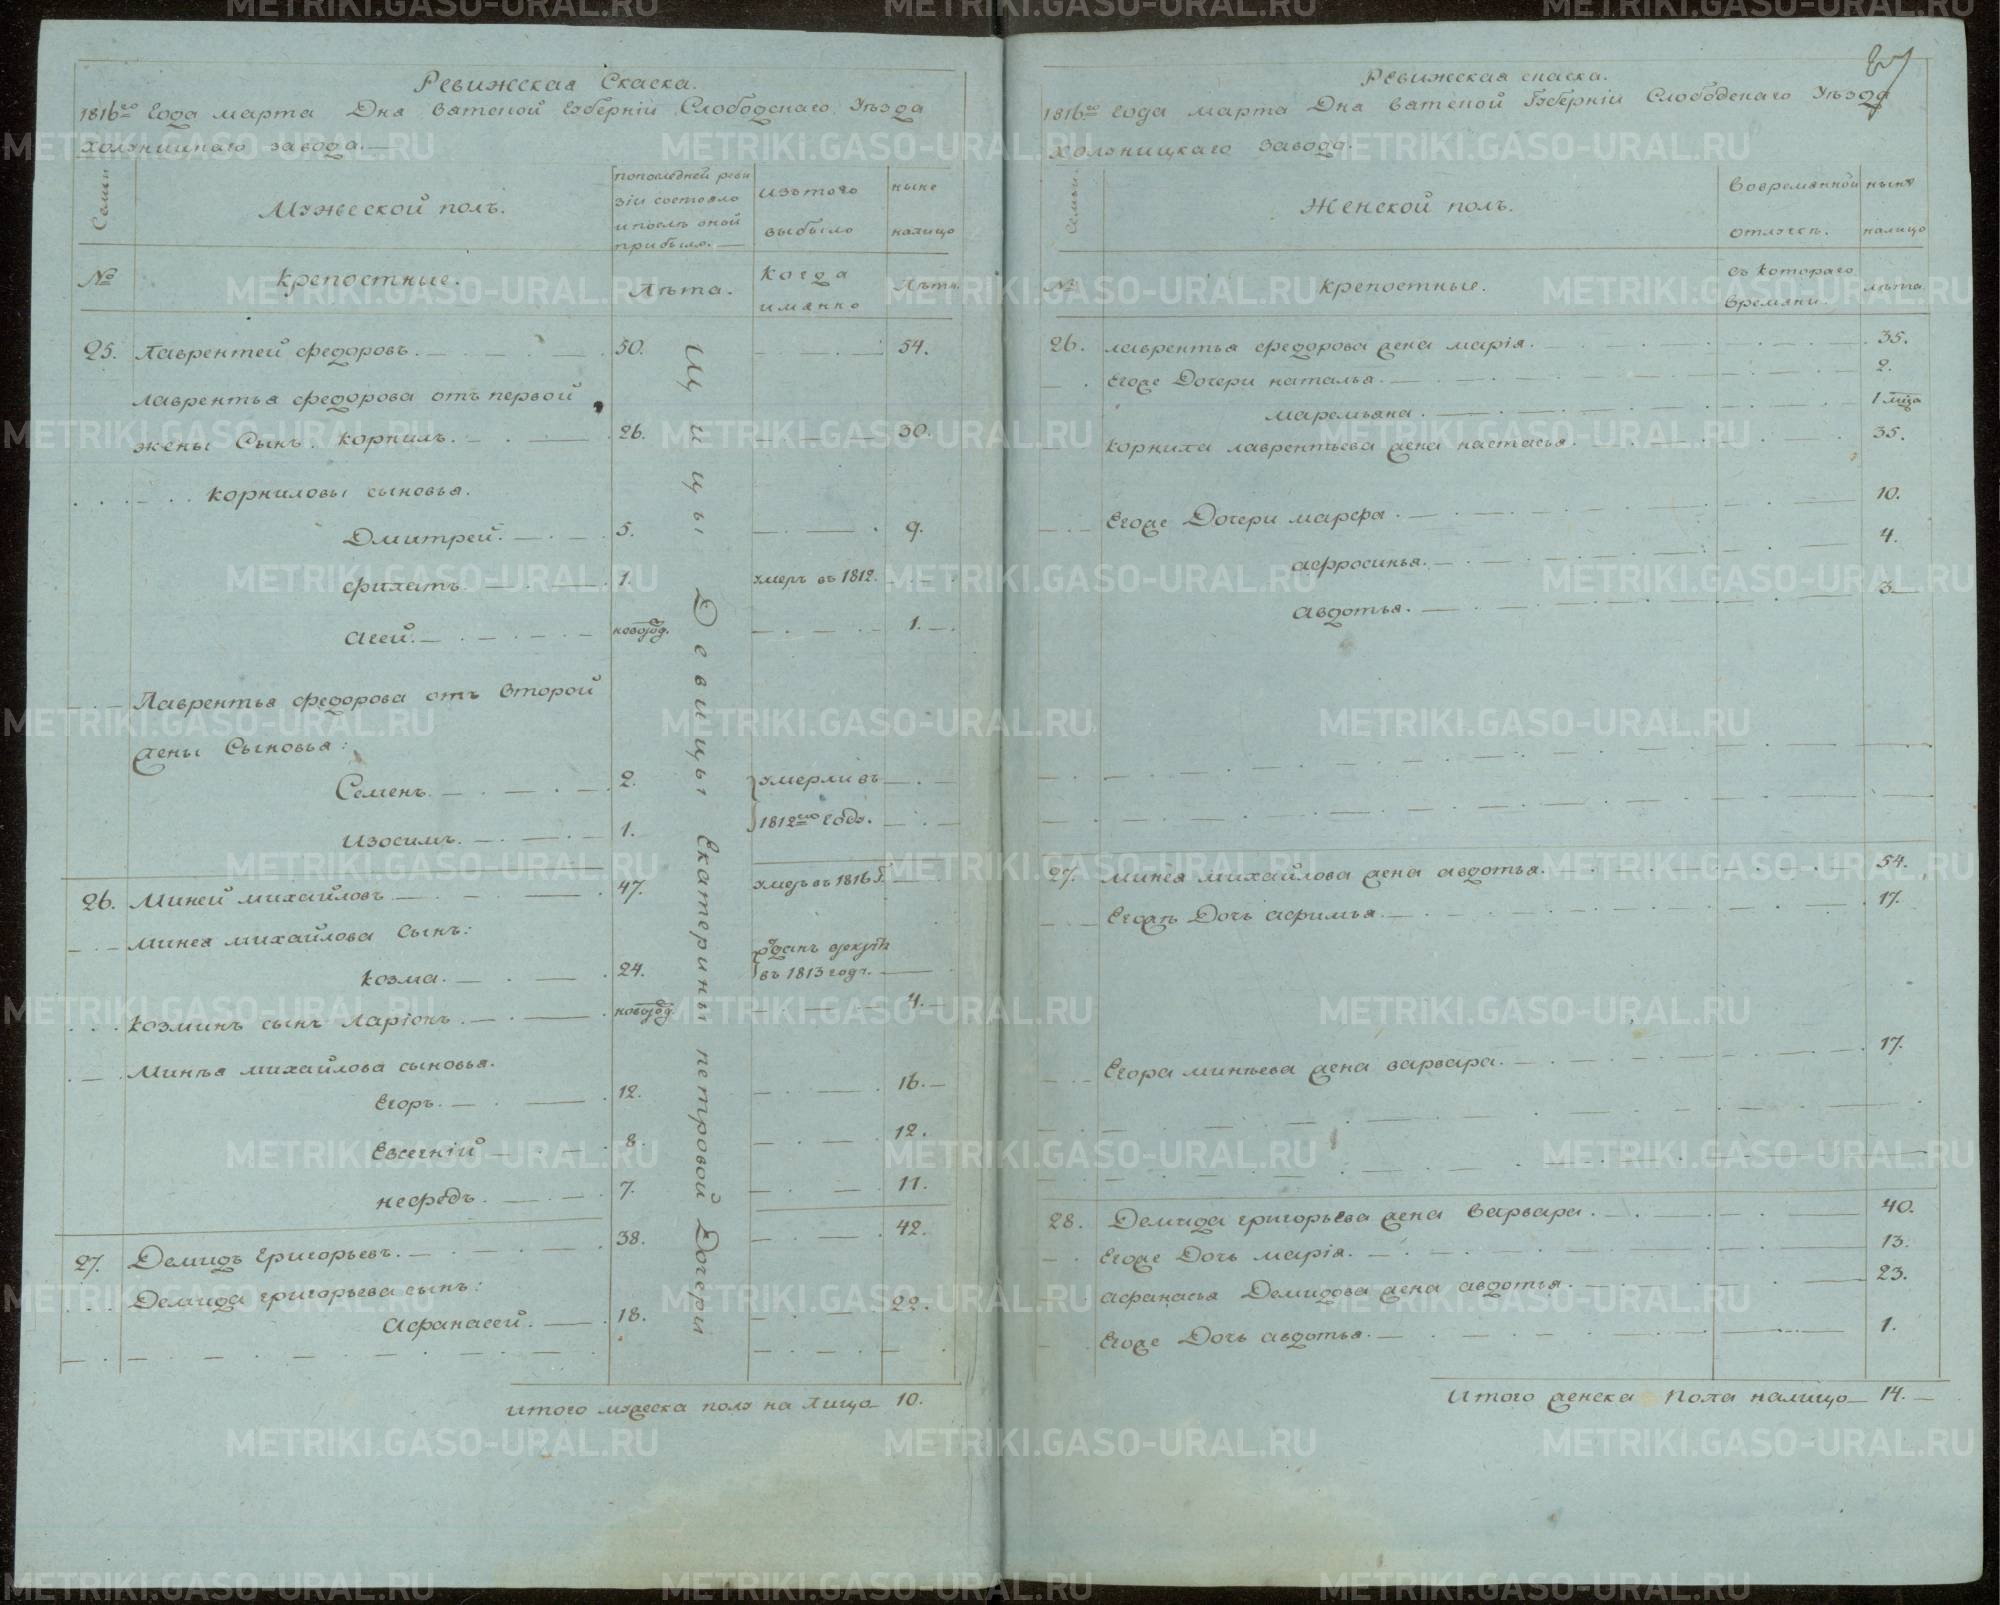 Ревижская Скаска.
1816го Года марта Дня Ватской Губерніи Слободскаго Уѣзда
Холуницкаго завода.
Семьи
Мужеской полъ.
попоследней реви
зіи состояло
и послѣ оной
прибыло.
изътого
выбыло
ныне
налицо
№
крепостные.
Лѣта.
Когда
имянно
Лѣта.
25. Лаврентей федоровъ. 50. 54.
Лаврентья федорова отъ первой
жены Сынъ. Корнилъ. 26. 30.
Корниловы сыновья.
Дмитрей. 5. 9.
филатъ. 1. умеръ въ 1812.
Агей. новород. 1.
Лаврентья федорова отъ Второй
жены Сыновья:
Семенъ. 2. умерли въ
Изосимъ. 1. 1812мъ Году.
26. Миней михайловъ 47. умеръ въ 1816 г.
Минея михайлова Сынъ:
козма. 24. отданъ врекруты
въ 1813 году.
козминъ сынъ Ларіонъ. новород. 4.
Минѣя михайлова сыновья.
Егоръ. 12. 16.
Евсегній 8. 12.
нефедъ. 7. 11.
27. Демидъ Григорьевъ. 38. 42.
Демида григорьева сынъ:
Афанасей. 18. 22.
итого мужеска полу на лицо 10.
щицы Девицы Екатерины петровой Дочери
Ревижская скаска.
1816го Года марта Дня Ватской Губерніи Слободскаго Уѣзда
Холуницкаго Завода.
Семьи.
Женской полъ.
Вовремянной
отлучкъ.
нынѣ
налицо
№
крепостные.
съ котораго
времяни.
лѣта
26. лаврентья федорова жена марія. 35.
Егоже Дочери наталья. 2.
маремьяна. 1 мца
корнила лаврентьева жена настасья. 35.
Егоже Дочери марфа. 10.
афросинья. 4.
авдотья. 3.
27. минея михайлова жена авдотья. 54.
Егожъ Дочь афимья. 17.
Егора минѣева жена варвара. 17.
28. Демида григорьева жена Варвара. 40.
Егоже Дочь марія. 13.
афанасья Демидова жена авдотья. 23.
Егоже Дочь авдотья. 1.
Итого женска Пола налицо 14.
METRIKI.GASO-URAL.RU